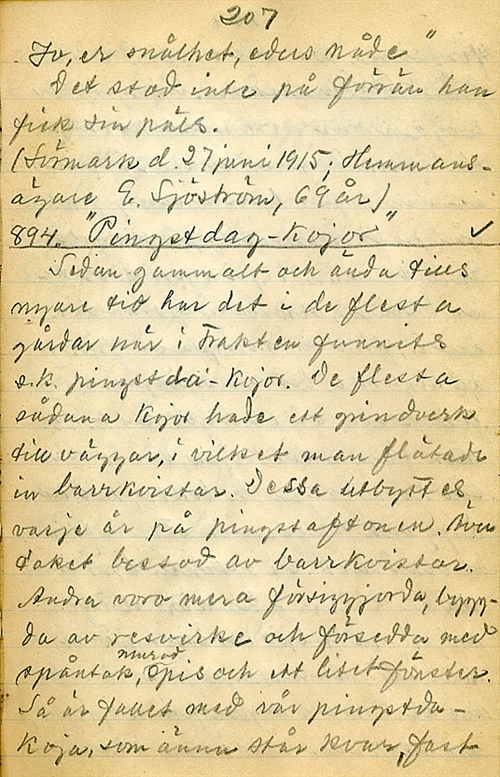 207
Jo, er snålhet, eders nåde"
Det stod inte på förrän han
fick sin päls.
(Sörmark d. 27 juni 1915; Hemmans-
ägare E. Sjöström, 69 år)
894. "Pingstdag-Kojor" ✓
Sedan gammalt och ända tills
nyare tid har det i de flesta
gårdar här i trakten funnits
s.k. pingstda-Kojor. De flesta
sådana Kojor hade ett grindverk
till väggar, i vilket man flätade
in barrkvistar. Dessa utbyttes
varje år på pingstaftonen. Även
taket bestod av barrkvistar.
Andra voro mera försiggjorda, bygg-
da av resvirke och försedda med
spåntak, murad spis och ett litet fönster.
Så är fallet med vår pingstda-
Koja, som ännu står kvar, fast